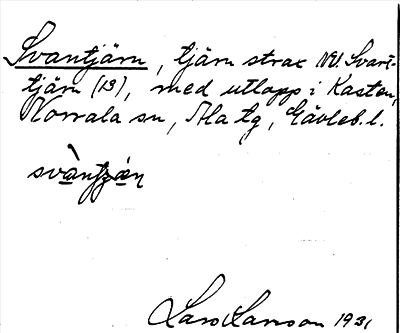 Svantjärn, tjärn strax NV. Svart-
tjärn (13), med utlopp i Kasten,
Norrala sn, Ala tg, Gävleb. l.
svàntjæ̀n
Lars Larsson 1931